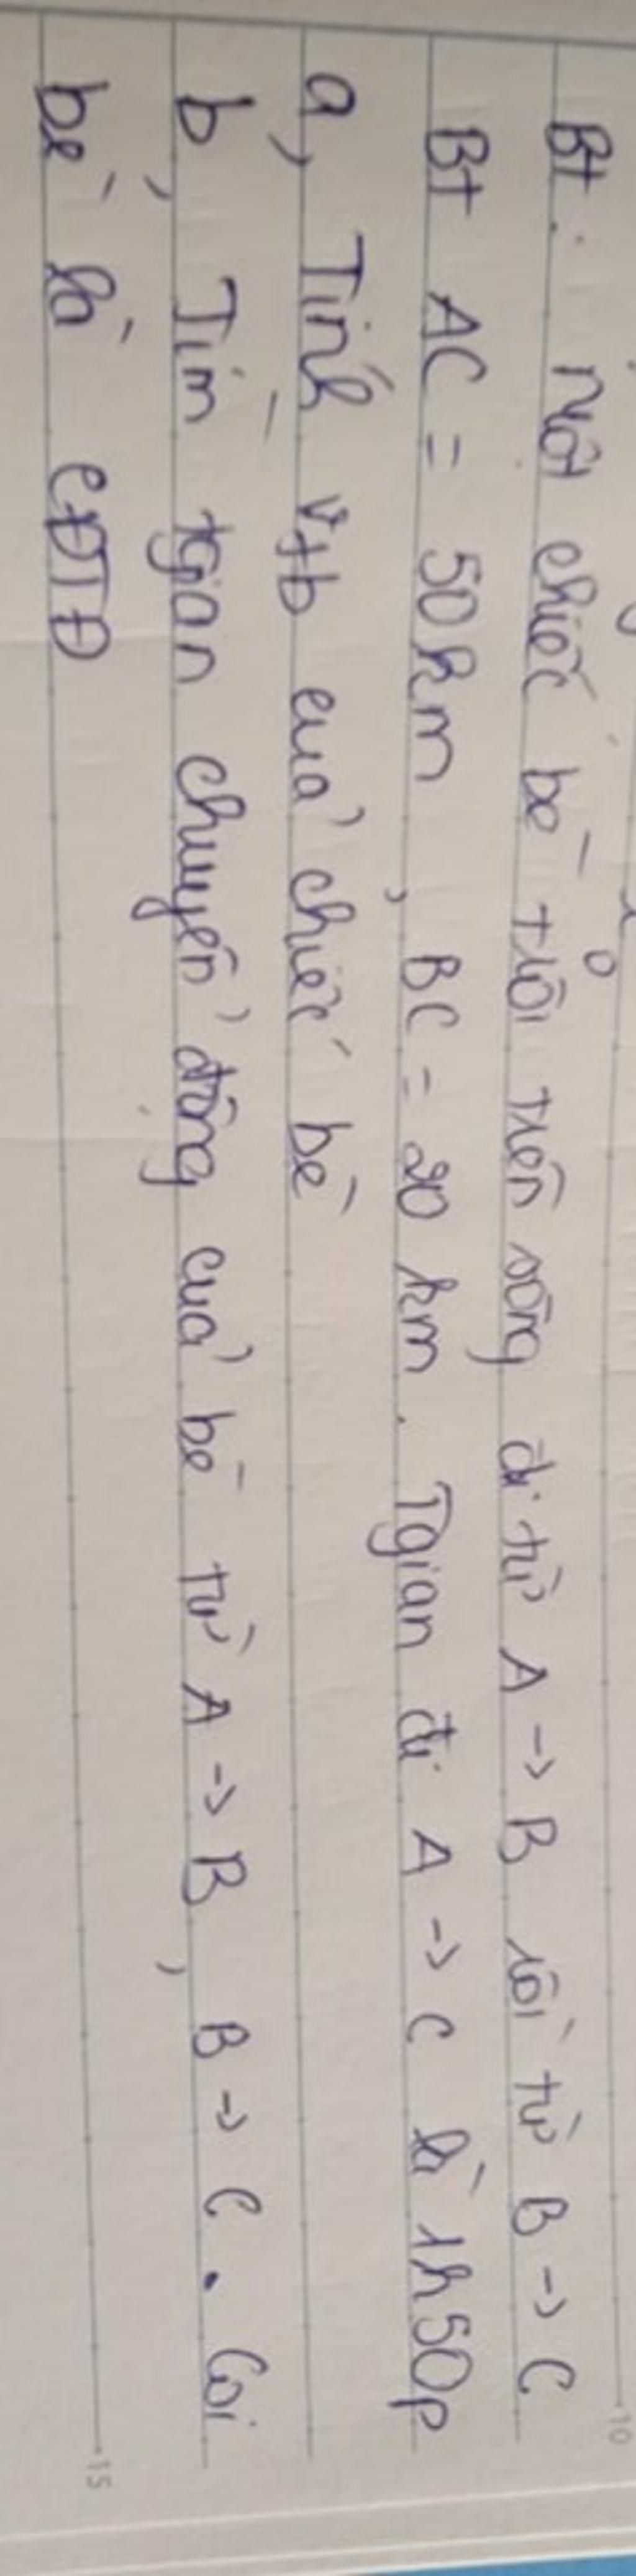 Bt: Một chiếc bè trôi trên sông đi từ A -> B rồi từ B -> C
Bt AC = 50km, BC = 20 km. Tgian đi A -> C là 1h50p
a, Tính vtb của chiếc bè
b, Tìm tgian chuyển động của bè từ A -> B, B -> C. Coi
bè là CĐTĐ
10
15